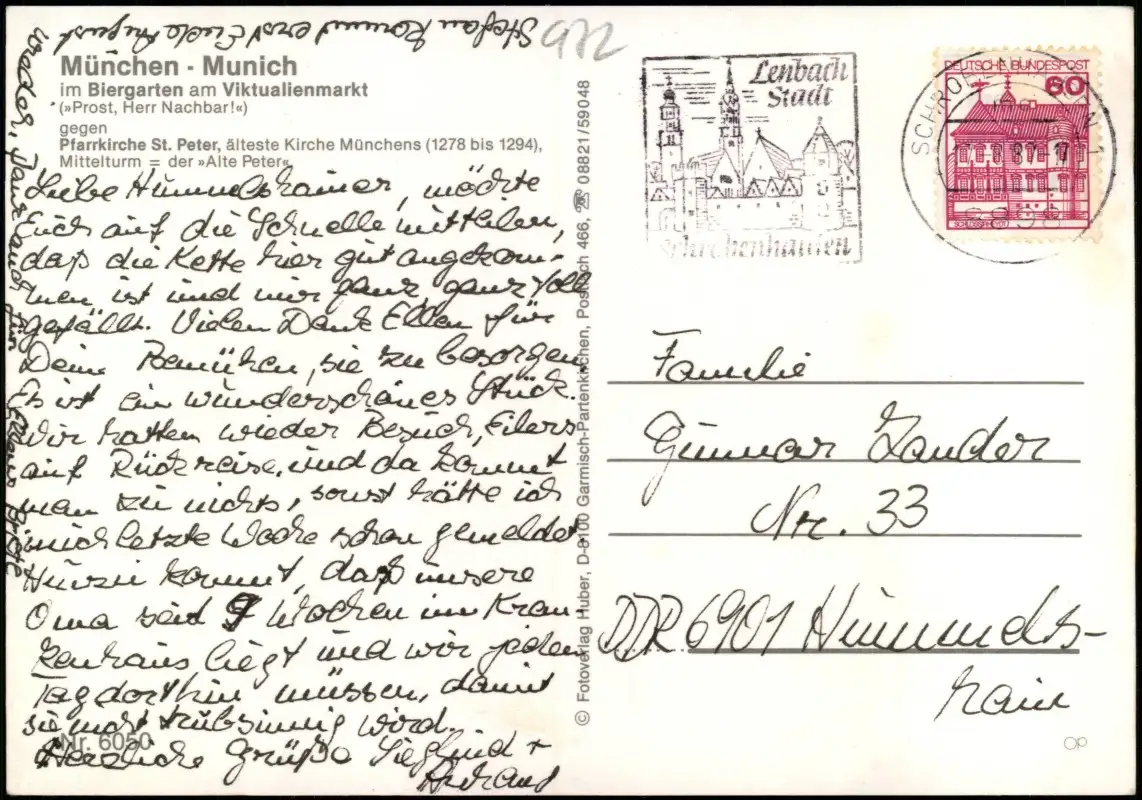 München · Munich
im Biergarten am Viktualienmarkt
(»Prost, Herr Nachbar!«)
gegen
Pfarrkirche St. Peter, älteste Kirche Münchens (1278 bis 1294),
Mittelturm = der »Alte Peter«
Liebe Hummelshainer, möchte
Euch auf die Schnelle mitteilen,
daß die Kette hier gut angekom-
men ist und mir ganz, ganz toll
gefällt. Vielen Dank Ellen für
Deine Bemühen, sie zu besorgen.
Es ist ein wunderschönes Stück.
Wir hatten wieder Besuch, Eilers
auf Rückreise, und da kommt
man zu nichts, sonst hätte ich
mich letzte Woche schon gemeldet
Hinzu kommt, daß unsere
Oma seit 9 Wochen im Kran-
kenhaus liegt und wir jeden
Tag dorthin müssen, damit
sie nicht trübsinnig wird.
Herzliche Grüße Sieglind +
Stefan kommt erst Ende August
wieder, Danke auch für
Nr. 6050
© Fotoverlag Huber, D-8100 Garmisch-Partenkirchen, Postfach 466, ☎ 08821/59048
922
Lenbach
Stadt
Schrobenhausen
DEUTSCHE BUNDESPOST
60
SCHROBENHAUSEN 1
Familie
Gunnar Zander
Nr. 33
DDR 6901 Hummels-
hain
OP